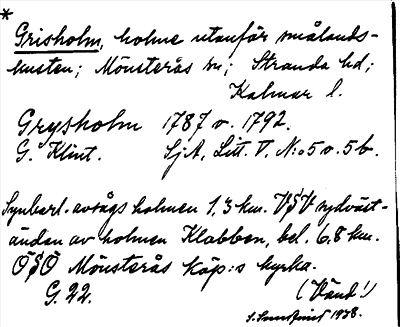 *
Grisholm, holme utanför smålands-
kusten; Mönsterås sn; Stranda hd;
Kalmar l.
Grysholm 1787 o. 1792.
G. Klint. SjA, Litt. V, N:o 5 o. 5b.
Synbarl. avsågs holmen 1,3 km. VSV sydväst-
änden av holmen Klabben, bel. 6,8 km.
OSO Mönsterås köp:s kyrka.
G. 22. (Vänd!)
1938.